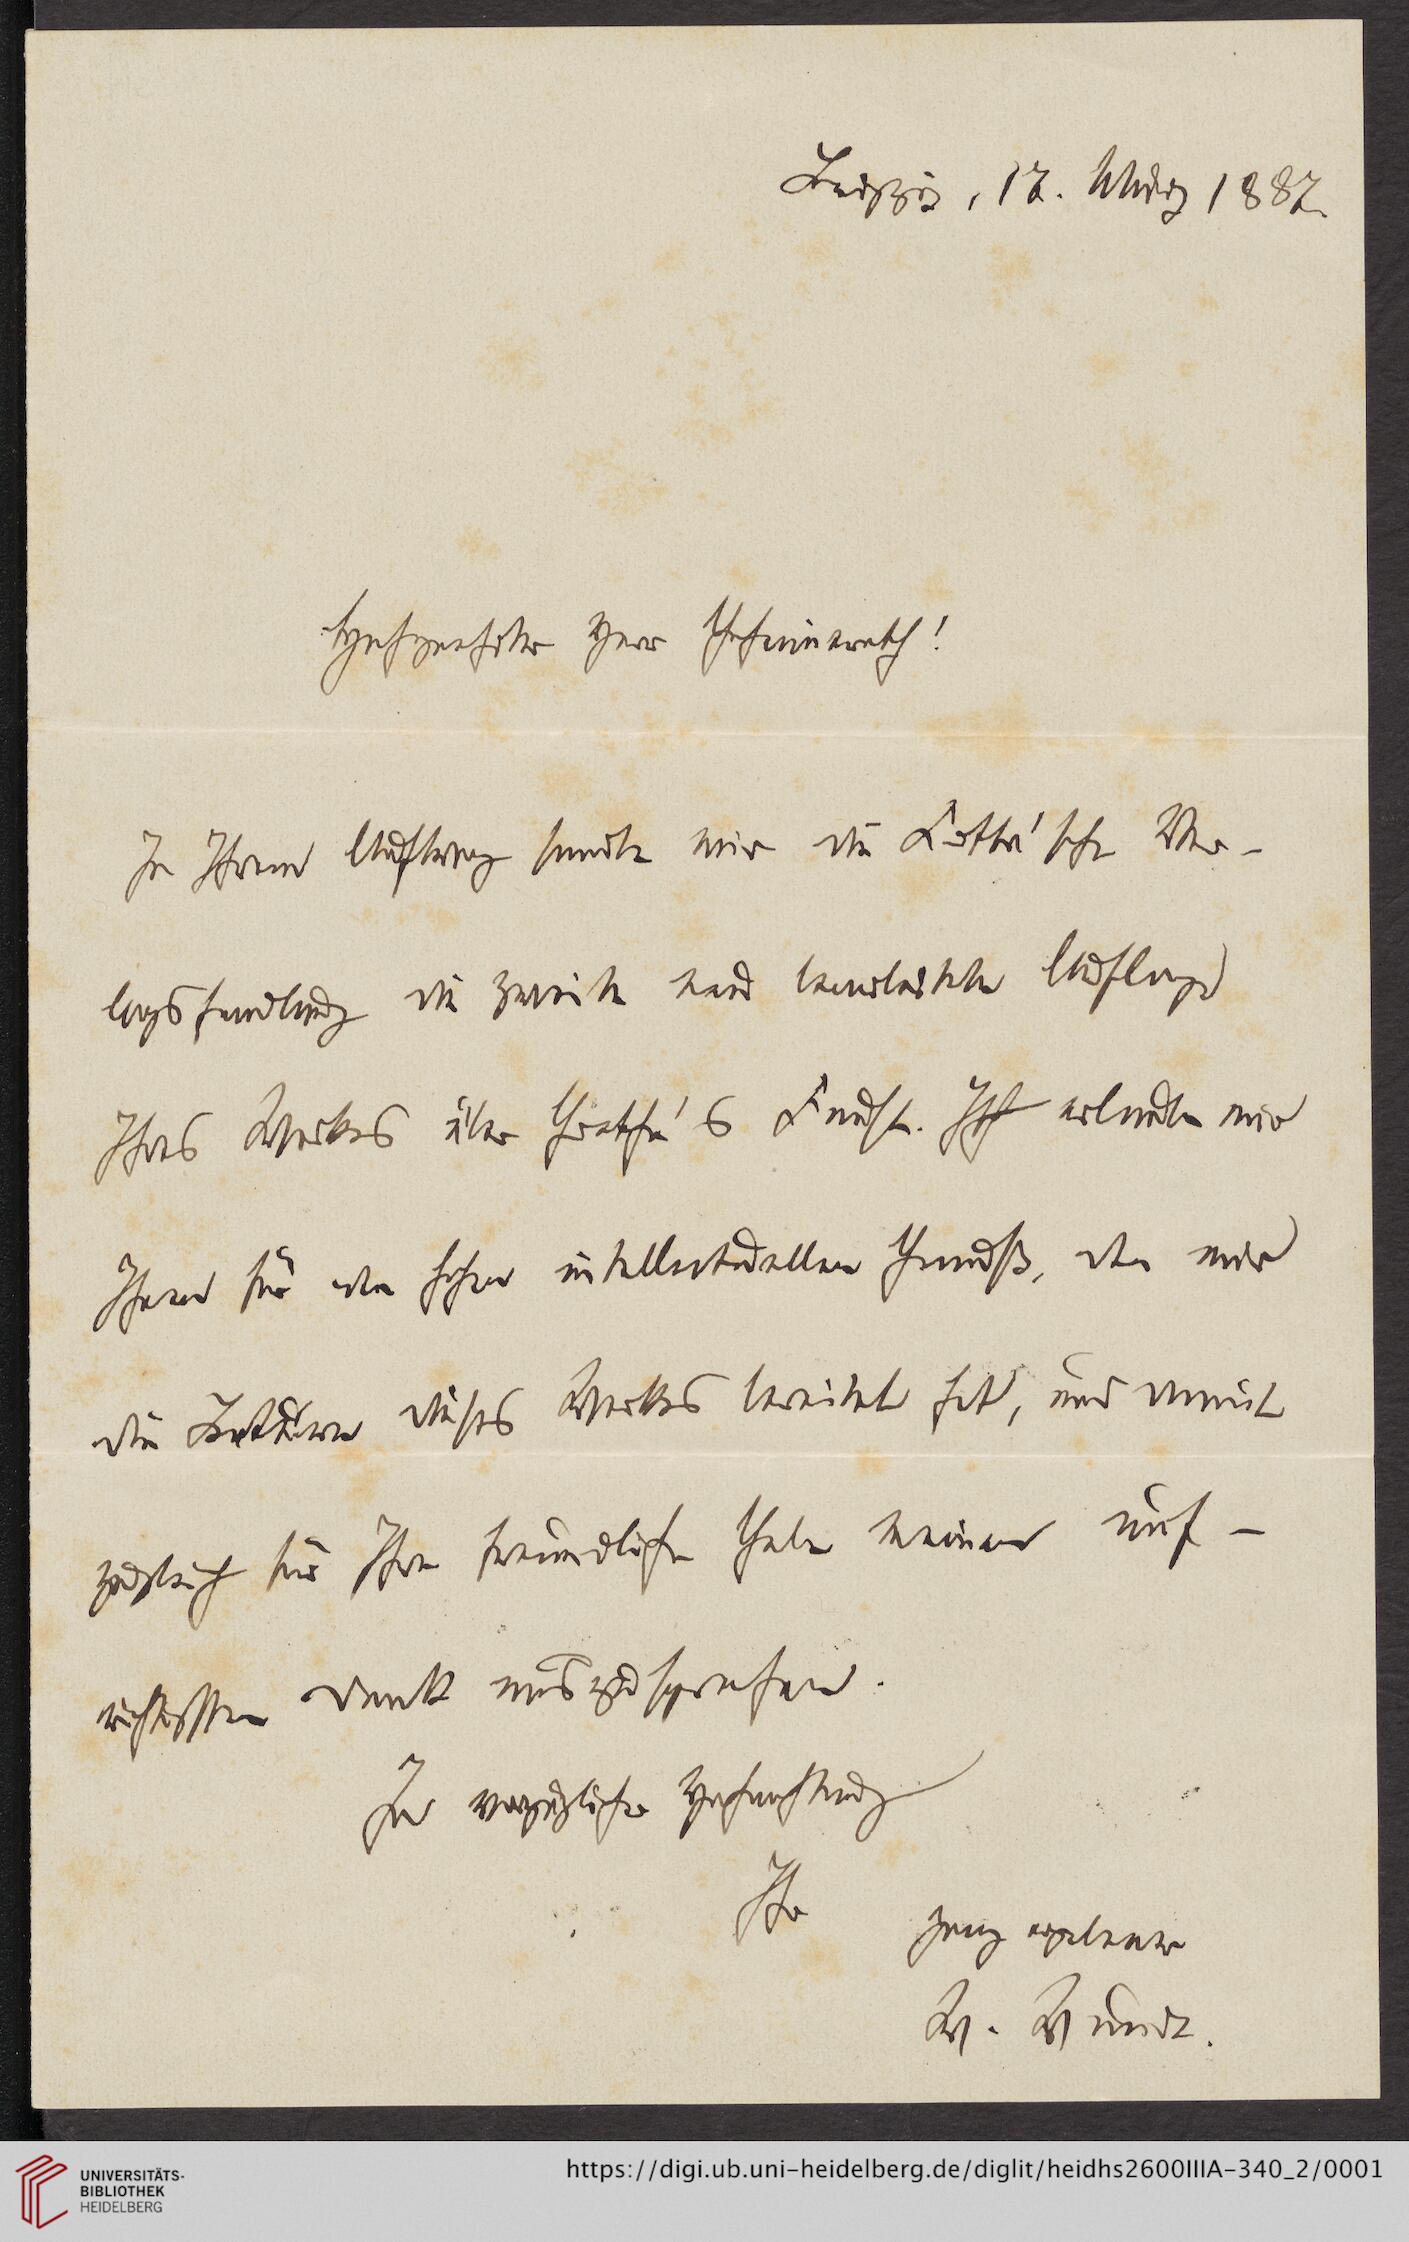 Leipzig, 17. März 1887.
Hochgeehrter Herr Geheimerath!
In Ihrem Auftrag sandte mir die Cotta'sche Ver-
lagshandlung die zweite neu bearbeitete Auflage
Ihres Werkes über Goethe's Faust. Ich erlaube mir
Ihnen für den hohen intellectuellen Genuß, den mir
die Lektüre dieses Werkes bereitet hat, und damit
zugleich für Ihre freundliche Gabe meinen auf-
richtigsten Dank auszusprechen.
In vorzüglicher Hochachtung
Ihr
ganz ergebenster
W. Wundt.
UNIVERSITÄTS-
BIBLIOTHEK
HEIDELBERG
https://digi.ub.uni-heidelberg.de/diglit/heidhs2600IIIA-340_2/0001